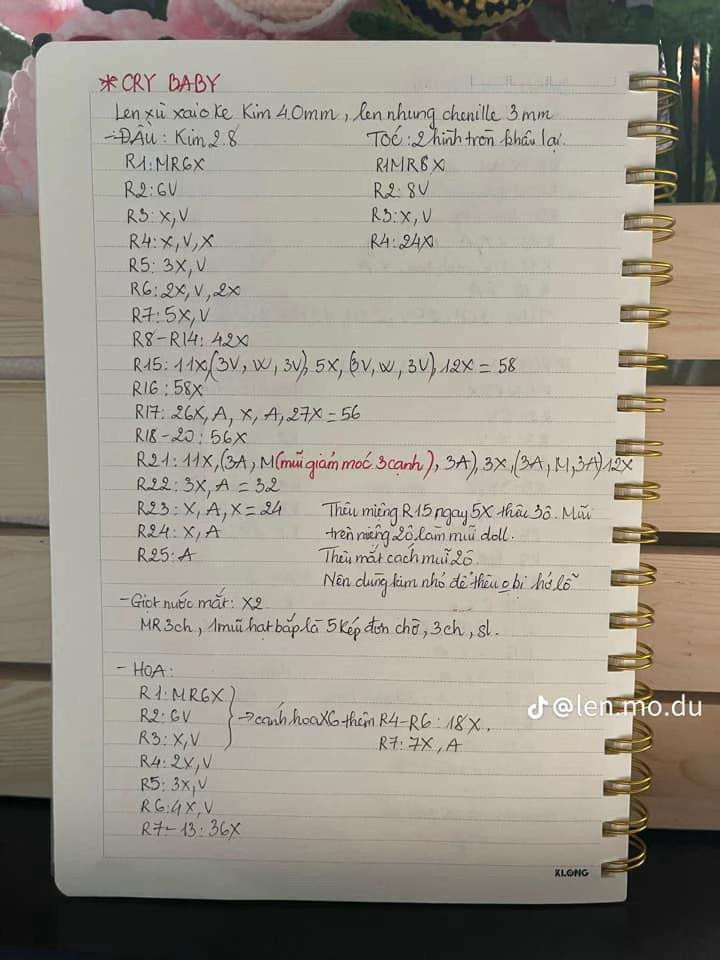 *CRY BABY
Len xù xaioke Kim 4.0mm, len nhung chenille 3mm
- ĐẦU: Kim 2.8
R1: MR6X
R2: 6V
R3: X, V
R4: X, V, X
R5: 3X, V
R6: 2X, V, 2X
R7: 5X, V
R8-R14: 42X
Tóc: 2 hình tròn khâu lại.
R1MR8X
R2: 8V
R3: X, V
R4: 24X
R15: 11X, (3V, W, 3V), 5X, (3V, W, 3V), 12X = 58
R16: 58X
R17: 26X, A, X, A, 27X = 56
R18-20: 56X
R21: 11X, (3A, M(mũi giảm móc 3 cạnh), 3A), 3X, (3A, M, 3A) 12X
R22: 3X, A = 32
R23: X, A, X = 24
R24: X, A
R25: A
Thêu miệng R15 ngay 5X thêu 3ô. Mũi
trên miệng 2ô làm mũi doll.
Thêu mắt cách mũi 2ô.
Nên dùng kim nhỏ để thêu o bị hở lỗ
- Giọt nước mắt: X2
MR 3ch, 1 mũi hạt bắp là 5 kép đơn chờ, 3ch, sl.
- HOA:
R1: MR6X
R2: 6V
R3: X, V
R4: 2X, V
R5: 3X, V
R6: 4X, V
R7-13: 36X
→ cánh hoa X6 thêm R4-R6: 18X.
R7: 7X, A
@len.mo.du
KLONG